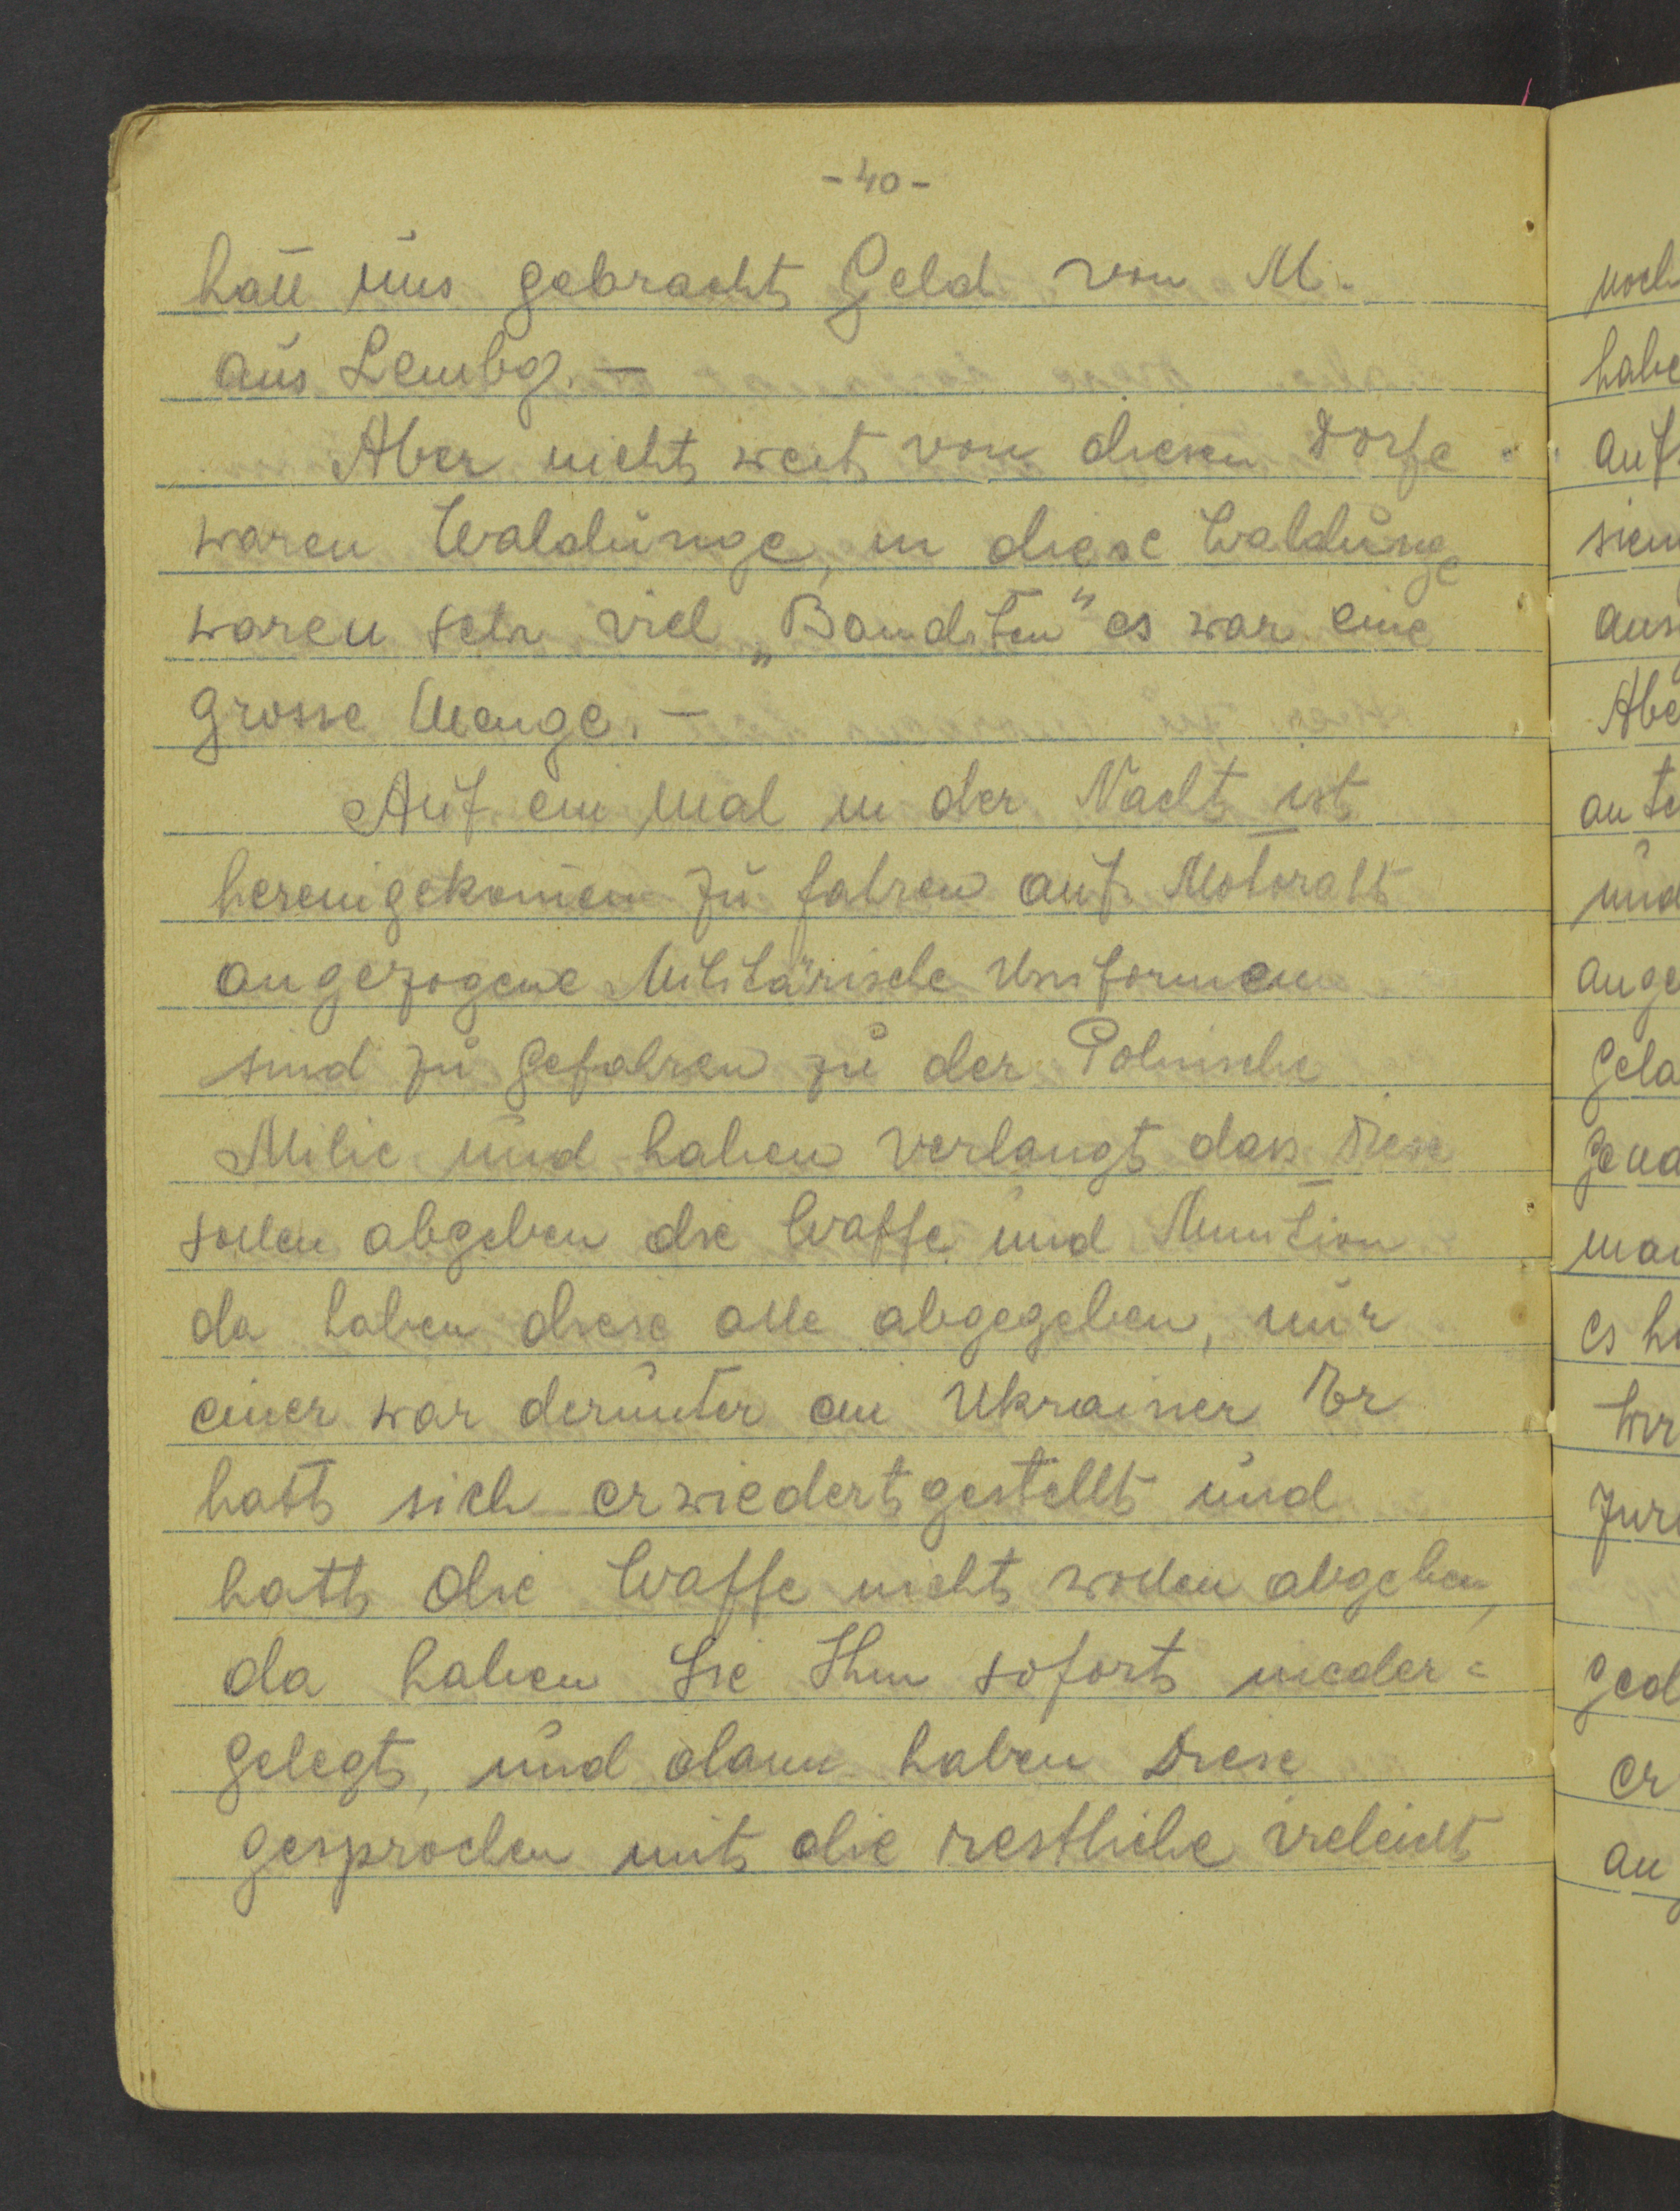 - 40 -
hatt uns gebracht Geld von M.
aus Lembg. —
Aber nicht weit von diesen Dorfe
waren Waldunge, in diese Waldunge
waren sehr viel „Banditen" es war eine
grosse Menge. —
Auf ein mal in der Nacht ist
hereingekommen zu fahren auf Motoratt
angezogene Militärische Uniformen
sind zu gefahren zu der Polnische
Milic und haben verlangt dass Diese
sollen abgeben die Waffe und Munition
da haben diese alle abgegeben, nur
einer war derunter ein Ukrainer Er
hatt sich erwiedert gestellt und
hatt die Waffe nicht wollen abgeben,
da haben Sie Ihm sofort nieder=
gelegt, und dann haben Diese
gesprochen mit die restliche
noch
habe
auf
aus
Abe
und
ange
es
Wir
er
an